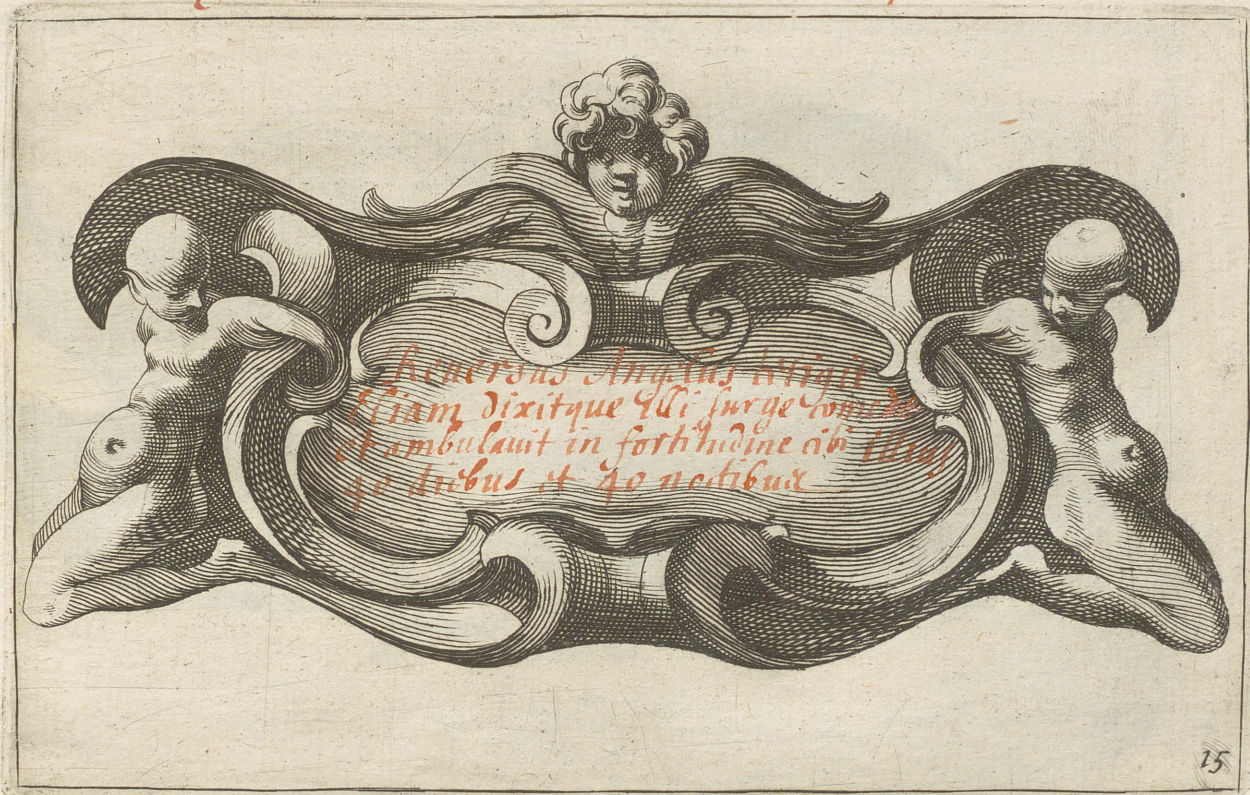 Reuersus Angelus tetigit
Eliam dixitque illi surge comede
et ambulauit in fortitudine cibi illius
40 diebus et 40 noctibus
15